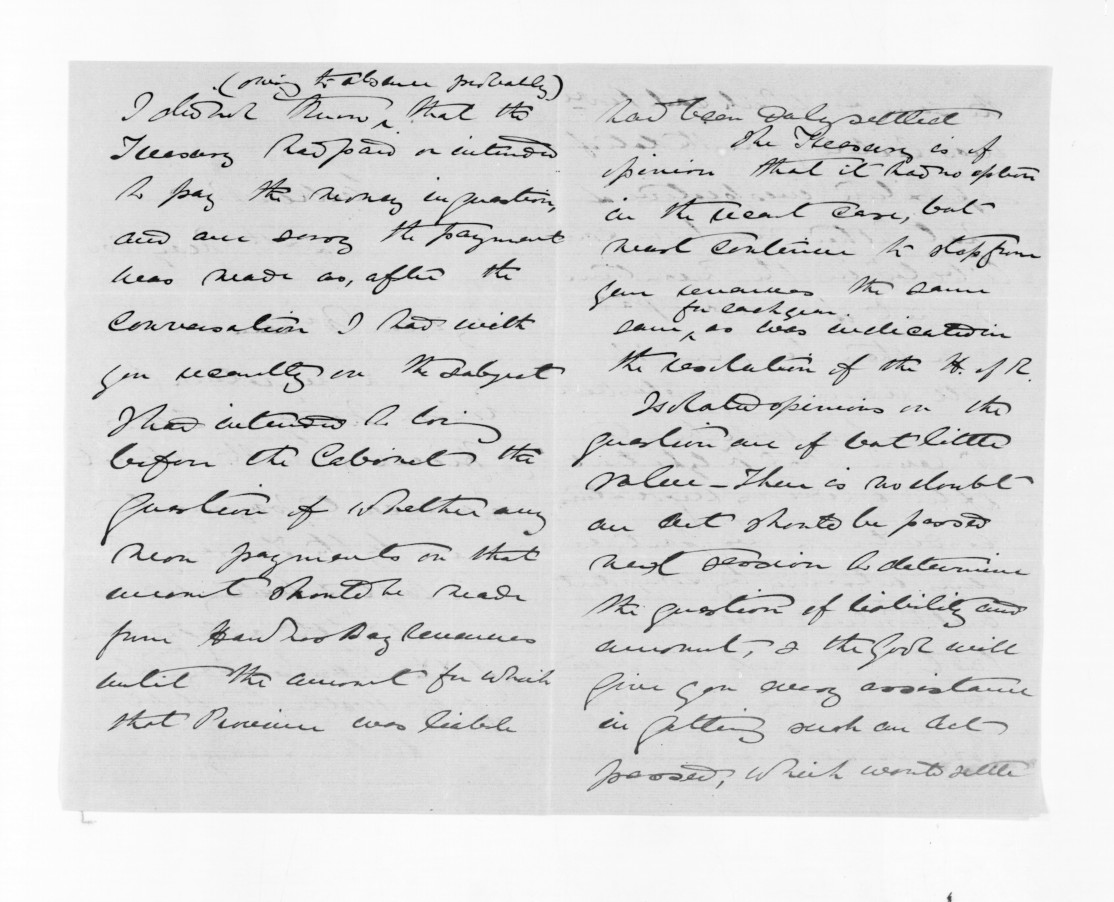 (owing to absence probably)
I did not know ^ that the
Treasury had paid or intended
to pay the money in question,
and am sorry the payment
was made as, after the
conversation I had with
you recently on the subject
I had intended to bring
before the Cabinet the
question of whether any
more payments on that
account should be made
from Hawkes Bay revenues
until the amount for which
that Province was liable
had been duly settled
The Treasury is of
opinion that it had no option
in the recent case, but
must continue to stop from
your revenues the same
for each year.
sum ^, as was indicated in
the resolution of the H. of R.
Isolated opinions on the
question are of but little
value – There is no doubt
an Act should be passed
next session to determine
the question of liability and
amount, & the Govt will
give you every assistance
in getting such an Act
passed, which would settle